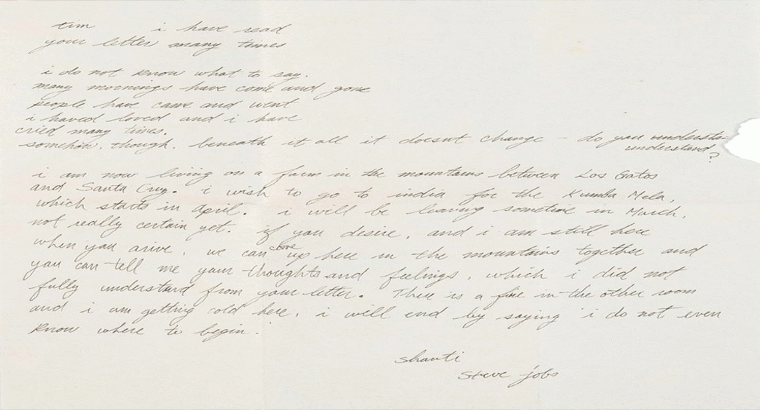 tim i have read
your letter many times
i do not know what to say.
many mornings have come and gone
people have came and went
i haved loved and i have
cried many times.
somehin, though, beneath it all it doesnt change – do you understa
understand?
i am now living on a farm in the mountains between Los Gatos
and Santa Cruz. i wish to go to india for the Kumba Mela,
which starts in April. i will be leaving sometive in March,
not really certain yet. if you desire, and i am still here
when you arive, we can come up here in the mountains together and
you can tell me your thoughts and feelings, which i did not
fully understand from your letter. There is a fire in the other room
and i am getting cold here. i will end by saying 'i do not even
know where to begin.'
shanti
steve jobs